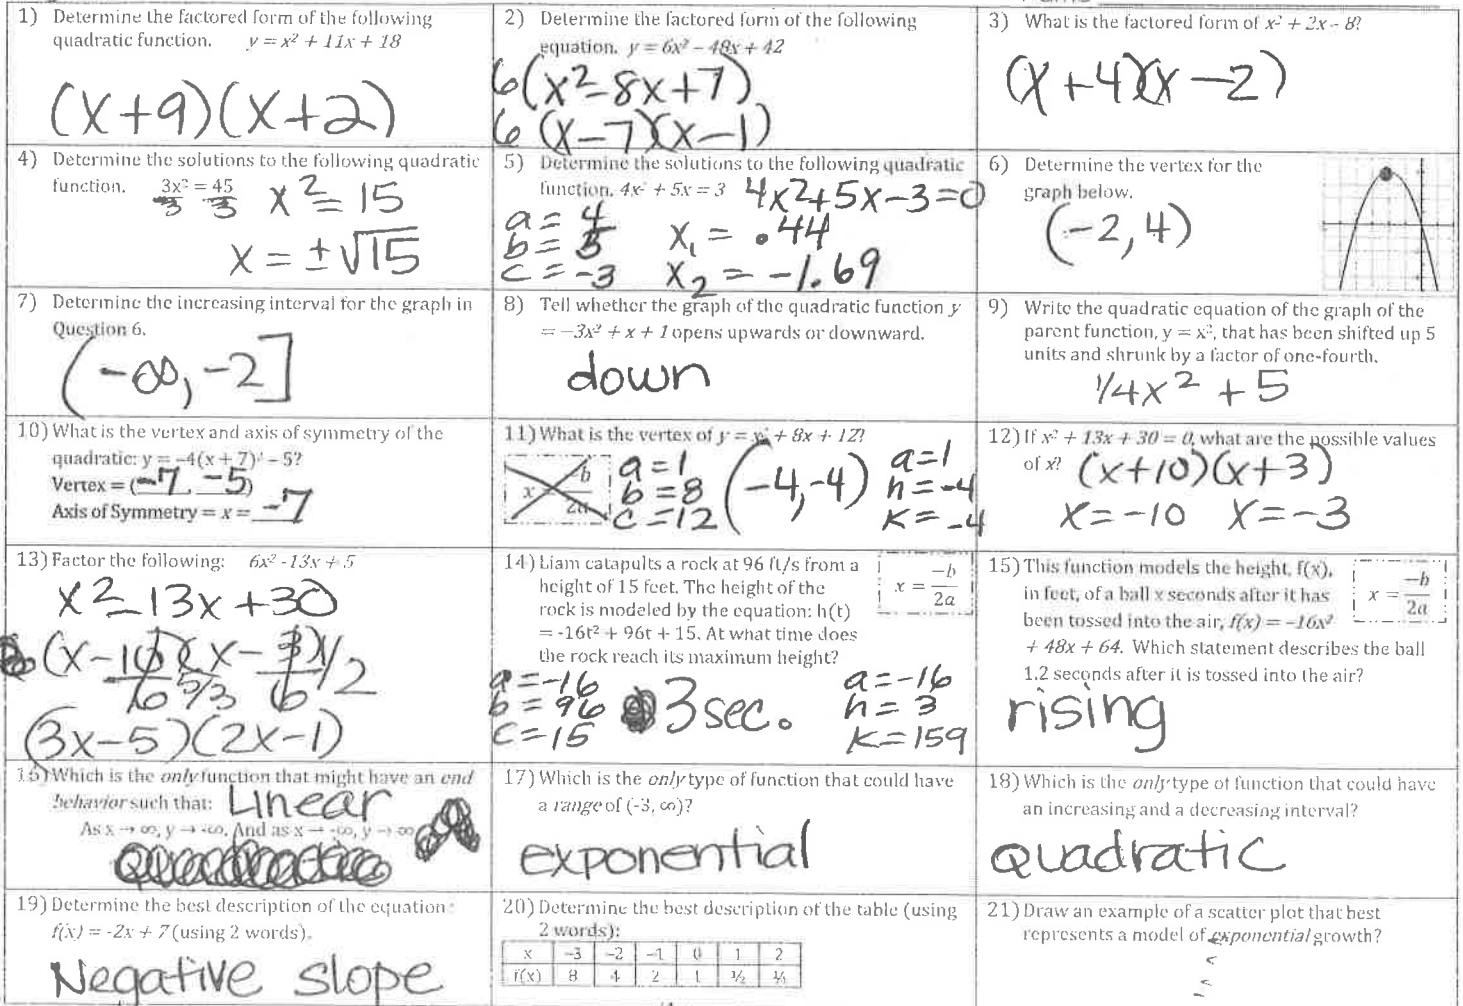 1) Determine the factored form of the following
quadratic function. y = x² + 11x + 18
(x+9)(x+2)
2) Determine the factored form of the following
equation. y = 6x² – 48x + 42
6(x²-8x+7)
6(x-7)(x-1)
3) What is the factored form of x² + 2x – 8?
(x+4)(x-2)
4) Determine the solutions to the following quadratic
function. 3x² = 45 x²=15
3 3
x = ±√15
5) Determine the solutions to the following quadratic
function. 4x² + 5x = 3 4x²+5x-3=0
a = 4
b = 5 x₁ = .44
c = -3 x₂ = -1.69
6) Determine the vertex for the
graph below.
(-2, 4)
7) Determine the increasing interval for the graph in
Question 6.
(-∞, -2]
8) Tell whether the graph of the quadratic function y
= –3x² + x + 1 opens upwards or downward.
down
9) Write the quadratic equation of the graph of the
parent function, y = x², that has been shifted up 5
units and shrunk by a factor of one-fourth.
1/4x² + 5
10) What is the vertex and axis of symmetry of the
quadratic: y = –4(x + 7)² – 5?
Vertex = (-7, -5)
Axis of Symmetry = x = -7
11) What is the vertex of y = x² + 8x + 12?
x b 2a
a=1 a=1
b=8 (-4,-4) h=-4
c=12 k=-4
12) If x² + 13x + 30 = 0, what are the possible values
of x? (x+10)(x+3)
x=-10 x=-3
13) Factor the following: 6x² -13x + 5
x²-13x+30
(x-10)(x-3) 1/2
6 5/3 6
(3x-5)(2x-1)
14) Liam catapults a rock at 96 ft/s from a
height of 15 feet. The height of the
rock is modeled by the equation: h(t)
= -16t² + 96t + 15. At what time does
the rock reach its maximum height?
x = -b/2a
a=-16 a=-16
b=96 3 sec. h=3
c=15 k=159
15) This function models the height, f(x),
in feet, of a ball x seconds after it has
been tossed into the air, f(x) = –16x²
+ 48x + 64. Which statement describes the ball
1.2 seconds after it is tossed into the air?
x = -b/2a
rising
16) Which is the only function that might have an end
behavior such that: Linear
As x → ∞, y → -∞. And as x → -∞, y → ∞
17) Which is the only type of function that could have
a range of (-3, ∞)?
exponential
18) Which is the only type of function that could have
an increasing and a decreasing interval?
Quadratic
19) Determine the best description of the equation:
f(x) = -2x + 7 (using 2 words).
Negative slope
20) Determine the best description of the table (using
2 words):
x –3 –2 –1 0 1 2
f(x) 8 4 2 1 ½ ¼
21) Draw an example of a scatter plot that best
represents a model of exponential growth?